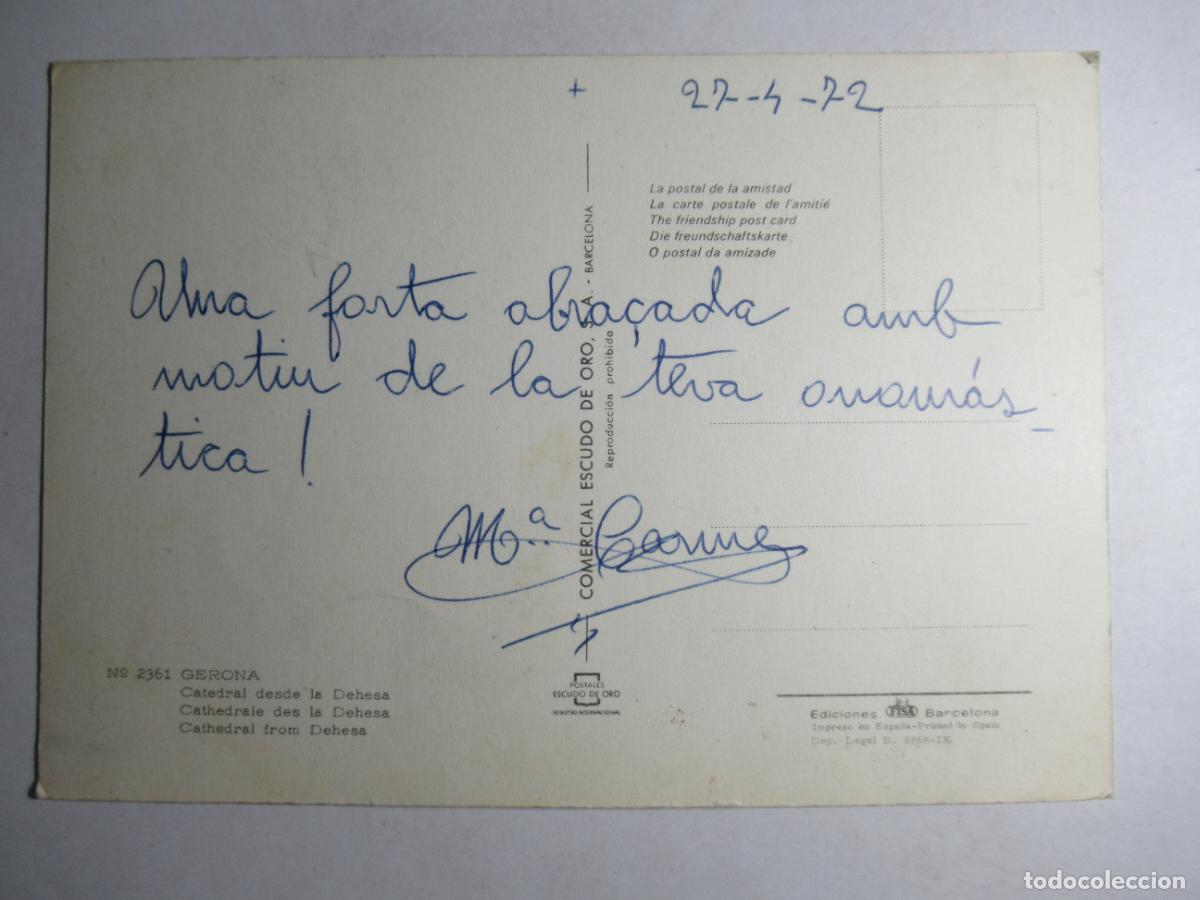 + 27-4-72
La postal de la amistad
La carte postale de l'amitié
The friendship post card
Die freundschaftskarte
O postal da amizade
Una forta abraçada amb
motiu de la teva onomás-
tica!
Mª Carme
COMERCIAL ESCUDO DE ORO, S.A. - BARCELONA
Reproducción prohibida
Nº 2361 GERONA
Catedral desde la Dehesa
Cathedrale des la Dehesa
Cathedral from Dehesa
POSTALES
ESCUDO DE ORO
REGISTRO INTERNACIONAL
Ediciones FISA Barcelona
Impreso en España-Printed in Spain
Dep. Legal B. 8868-IX
todocoleccion